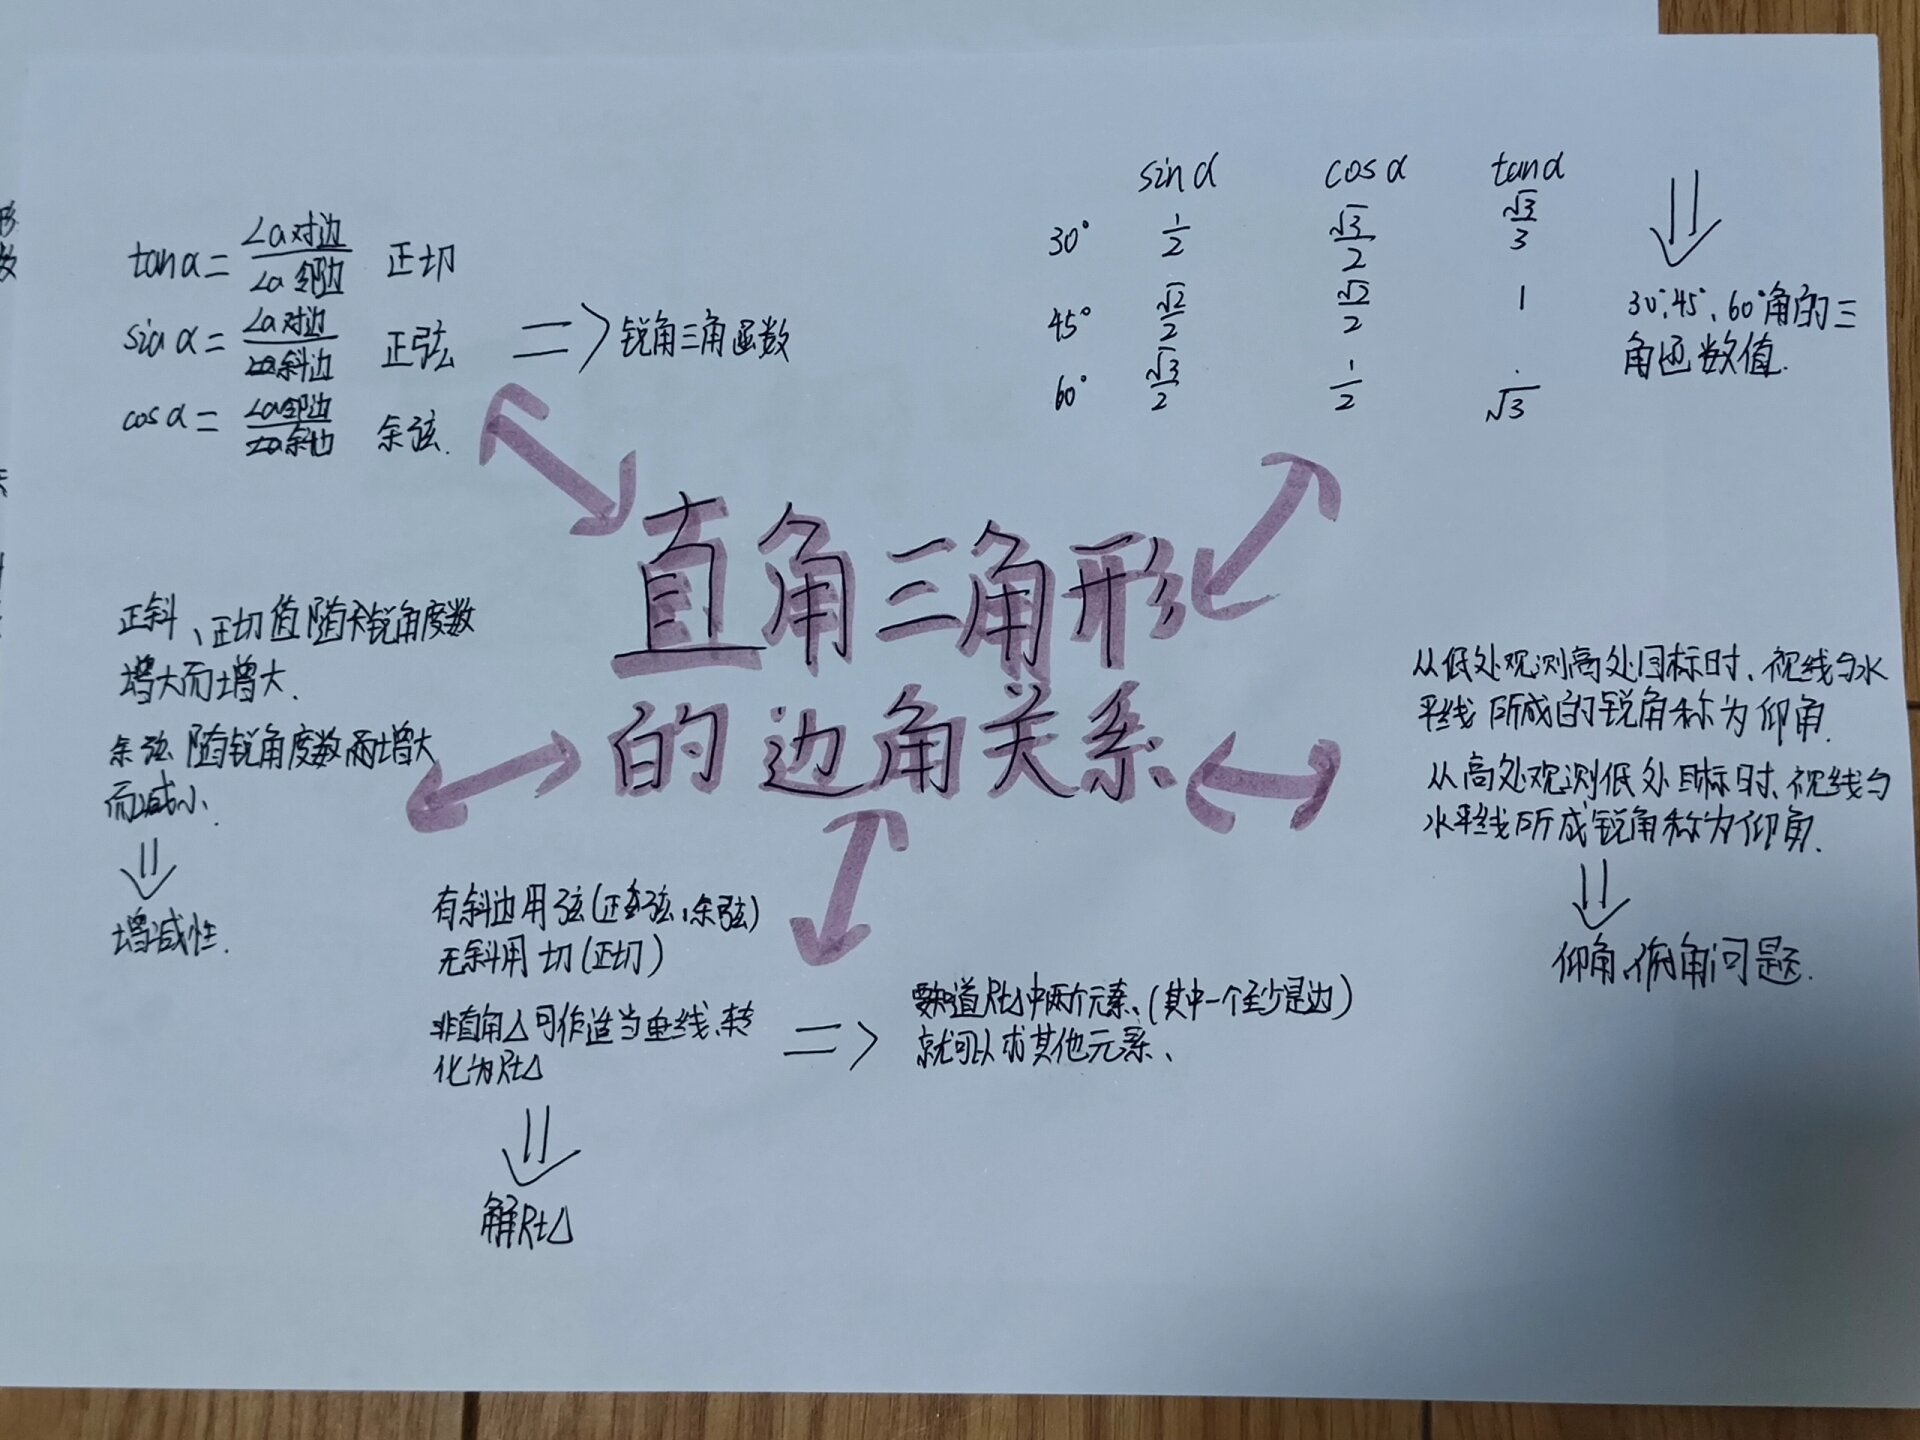 tanα = ∠a对边/∠a邻边 正切
sinα = ∠a对边/斜边 正弦
cosα = ∠a邻边/余边 余弦.
=> 锐角三角函数
sinα cosα tanα
30° 1/2 √3/2 √3/3
45° √2/2 √2/2 1
60° √3/2 1/2 √3
30°、45°、60°角的三
角函数值.
直角三角形
的边角关系
正斜、正切值随锐角度数
增大而增大.
余弦随锐角度数而增大
而减小.
增减性.
从低处观测高处目标时、视线与水
平线所成的锐角称为仰角.
从高处观测低处目标时、视线与
水平线所成锐角称为仰角.
仰角、俯角问题.
有斜边用弦(正弦、余弦)
无斜用切(正切)
非直角△可作适当垂线、转
化为Rt△
=> 要知道Rt△中两个元素、(其中一个至少是边)
就可以求其他元素、
解Rt△